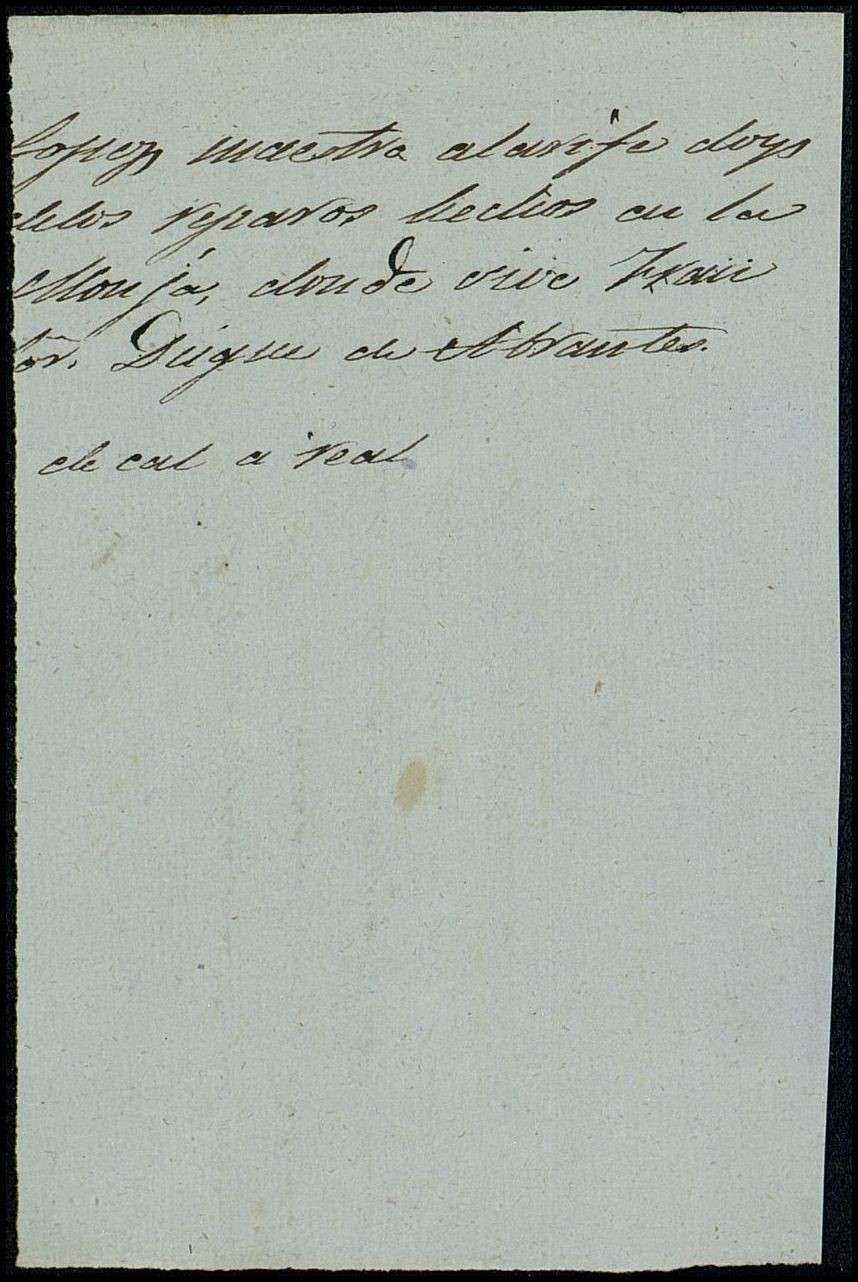 Lopez, maestro alarife doys
delos reparos hechos en la
Monja, donde vive Fran
Sor. Duque de Abrantes.
de cal a real